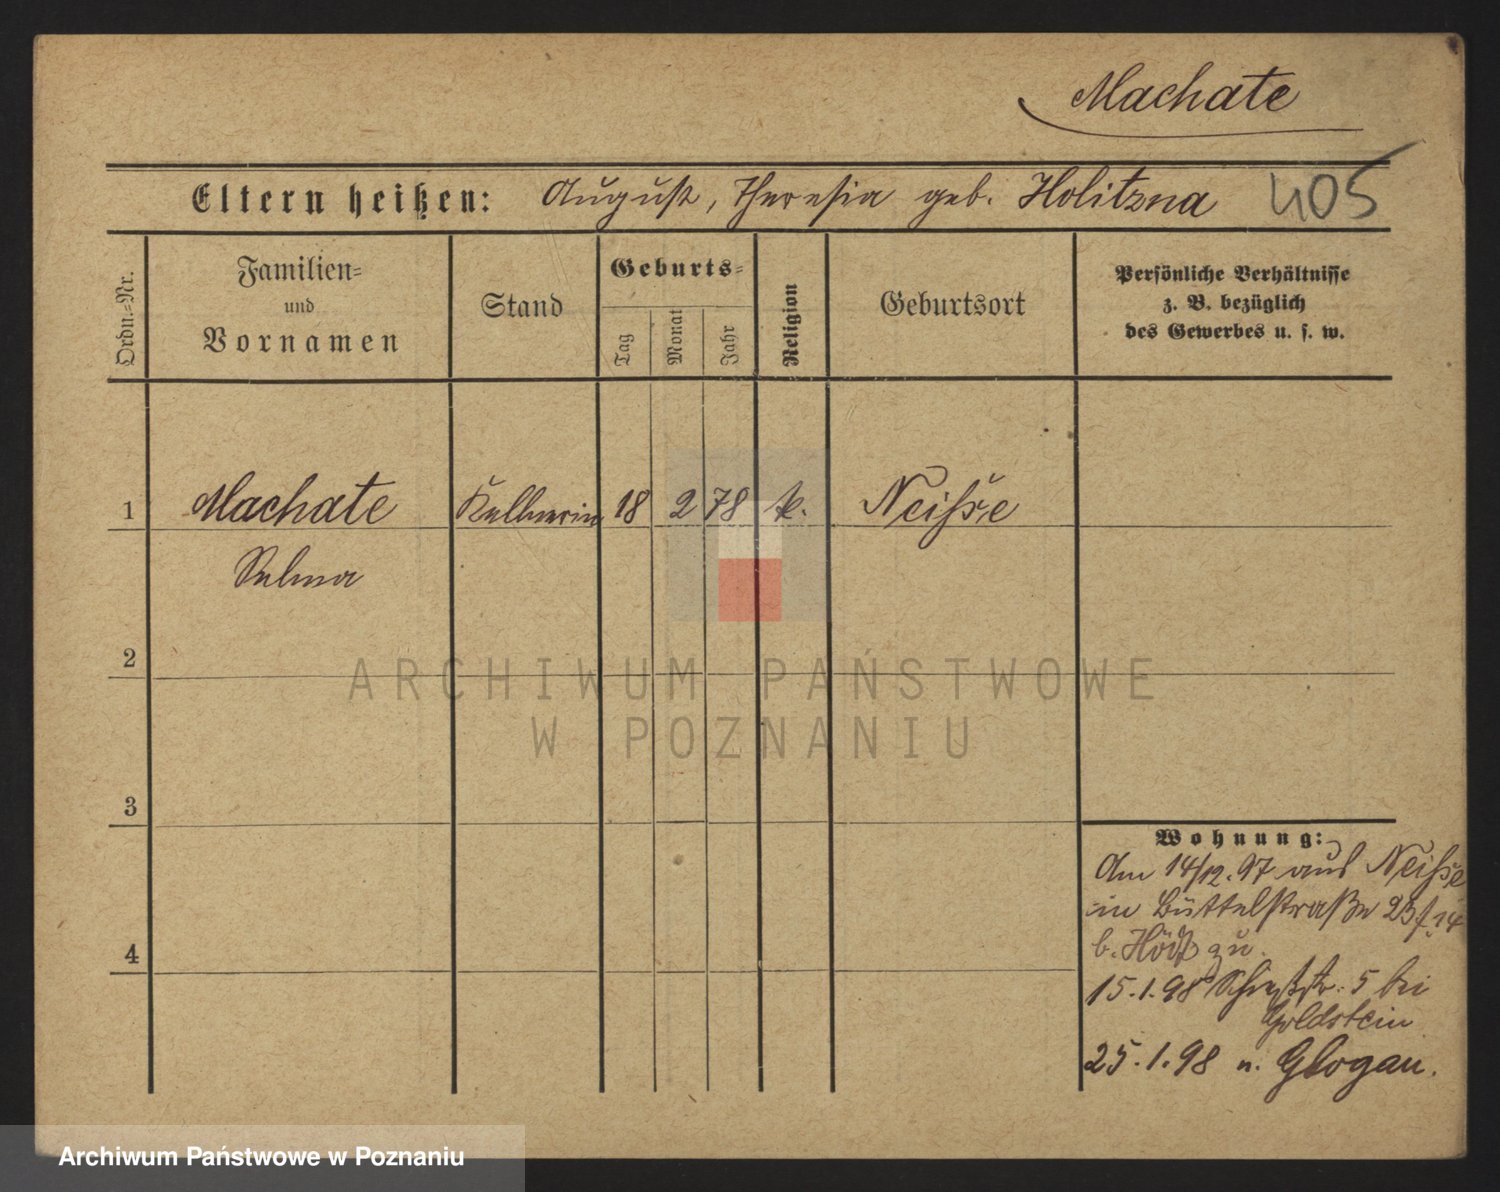 Machate
Eltern heißen: August, Theresia geb. Holitzna 405
Ordn.=Nr.
Familien=
und
Vornamen
Stand
Geburts=
Tag
Monat
Jahr
Religion
Geburtsort
Persönliche Verhältnisse
z. B. bezüglich
des Gewerbes u. s. w.
1 Machate Kellnerin 18 2 78 k. Neisse
Selma
2
ARCHIWUM PAŃSTWOWE
W POZNANIU
3
Wohnung:
Am 14/12.97 aus Neisse
in Büttelstraße 23 14
b. zu.
15.1.98 5 bei
Goldstein
4
25.1.98 n. Glogau.
Archiwum Państwowe w Poznaniu